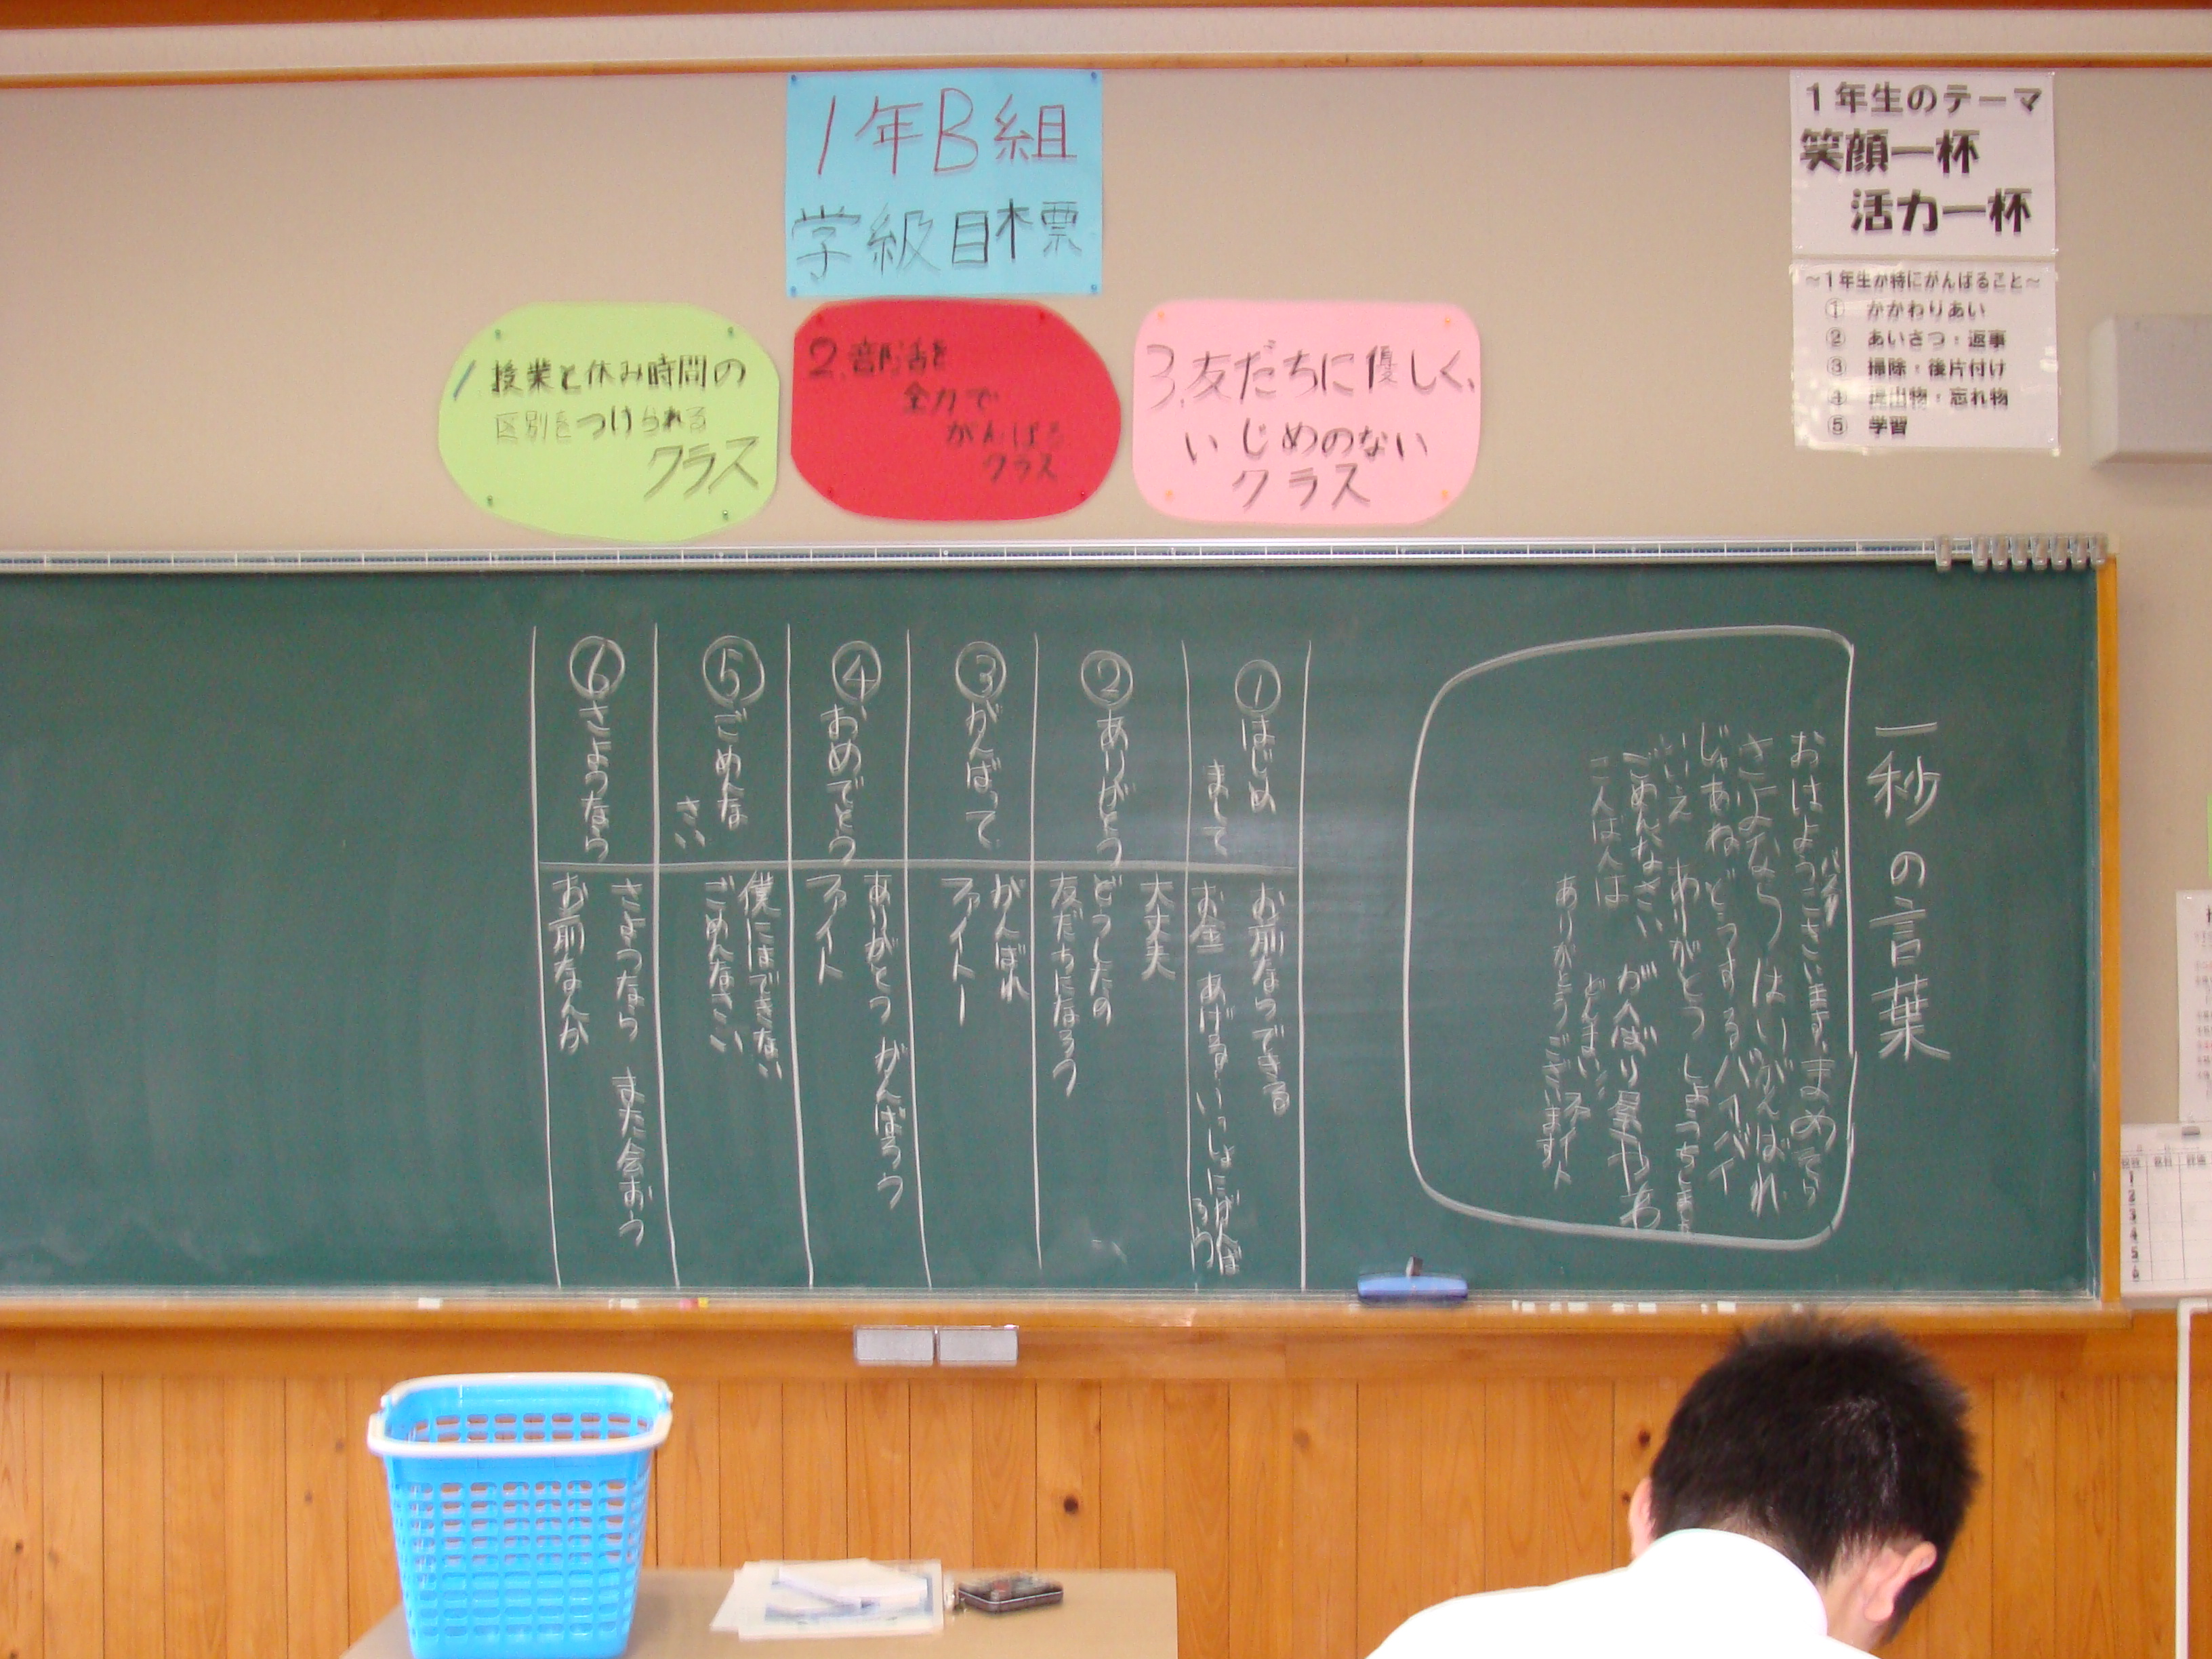 1年B組
学級目標
1. 授業と休み時間の
区別をつけられる
クラス
2. 部活を
全力で
がんばる
クラス
3. 友だちに優しく、
いじめのない
クラス
1年生のテーマ
笑顔一杯
活力一杯
～1年生が特にがんばること～
① かかわりあい
② あいさつ・返事
③ 掃除・後片付け
④ 提出物・忘れ物
⑤ 学習
一秒の言葉
おはようございます
さよなら はい がんばれ
じゃあね どうする バイバイ
いいえ ありがとう
ごめんなさい
こんばんは どんまい ファイト
ありがとうございます
①はじめ
まして
お前なつできる
お金 あげるよ いっしょにがんば
ろう
②ありがとう
大丈夫
どうしたの
友だちになろう
③がんばって
がんばれ
ファイトー
④おめでとう
ありがとう がんばろう
ファイト
⑤ごめんな
さい
僕にはできない
ごめんなさい
⑥さようなら
さようなら また会おう
お前なんか